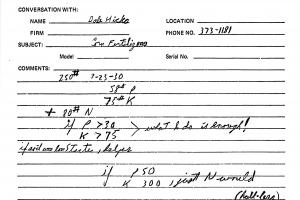 CONVERSATION WITH:
NAME Dale Hicks LOCATION
FIRM PHONE NO. 373-1181
SUBJECT: Corn Fertilizers
Model Serial No.
COMMENTS:
250# 7-23-30
58# P
75# K
+ 80# N
if P >30 > what I do is enough!
K > 75
if soil
if P 50
K 300, just N would